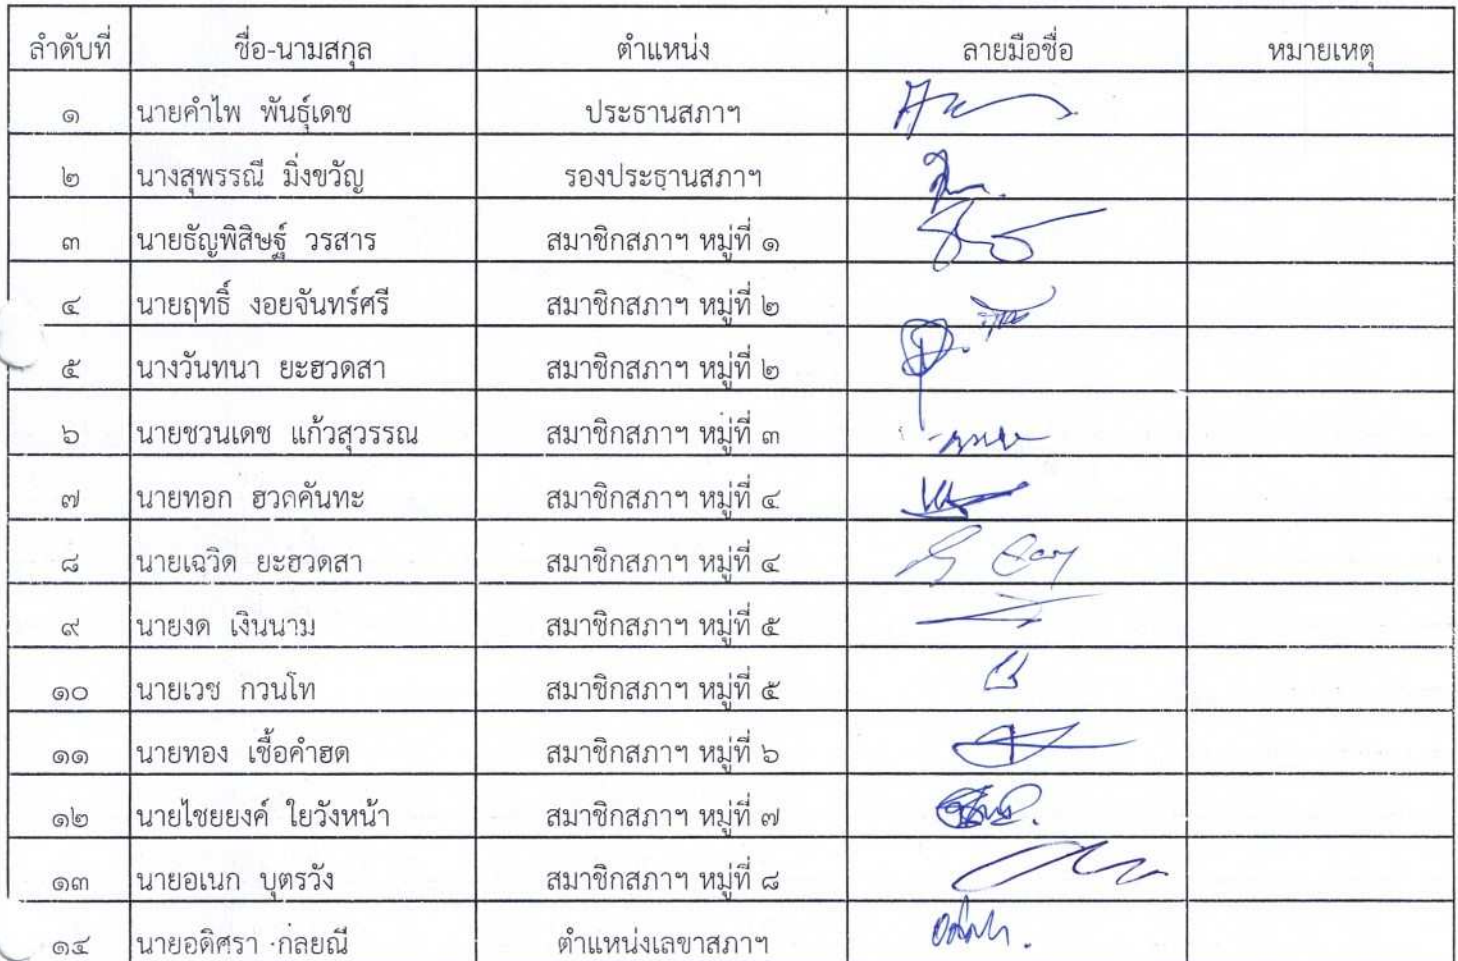 ลำดับที่ ชื่อ-นามสกุล ตำแหน่ง ลายมือชื่อ หมายเหตุ
๑ นายคำไพ พันธุ์เดช ประธานสภาฯ
๒ นางสุพรรณี มิ่งขวัญ รองประธานสภาฯ
๓ นายธัญพิสิษฐ์ วรสาร สมาชิกสภาฯ หมู่ที่ ๑
๔ นายฤทธิ์ งอยจันทร์ศรี สมาชิกสภาฯ หมู่ที่ ๒
๕ นางวันทนา ยะฮวดสา สมาชิกสภาฯ หมู่ที่ ๒
๖ นายชวนเดช แก้วสุวรรณ สมาชิกสภาฯ หมู่ที่ ๓
๗ นายทอก ฮวดคันทะ สมาชิกสภาฯ หมู่ที่ ๔
๘ นายเฉวิด ยะฮวดสา สมาชิกสภาฯ หมู่ที่ ๔
๙ นายงด เงินนาม สมาชิกสภาฯ หมู่ที่ ๕
๑๐ นายเวช กวนโท สมาชิกสภาฯ หมู่ที่ ๕
๑๑ นายทอง เชื้อคำฮด สมาชิกสภาฯ หมู่ที่ ๖
๑๒ นายไชยยงค์ ใยวังหน้า สมาชิกสภาฯ หมู่ที่ ๗
๑๓ นายอเนก บุตรวัง สมาชิกสภาฯ หมู่ที่ ๘
๑๔ นายอดิศรา กัลยณี ตำแหน่งเลขาสภาฯ